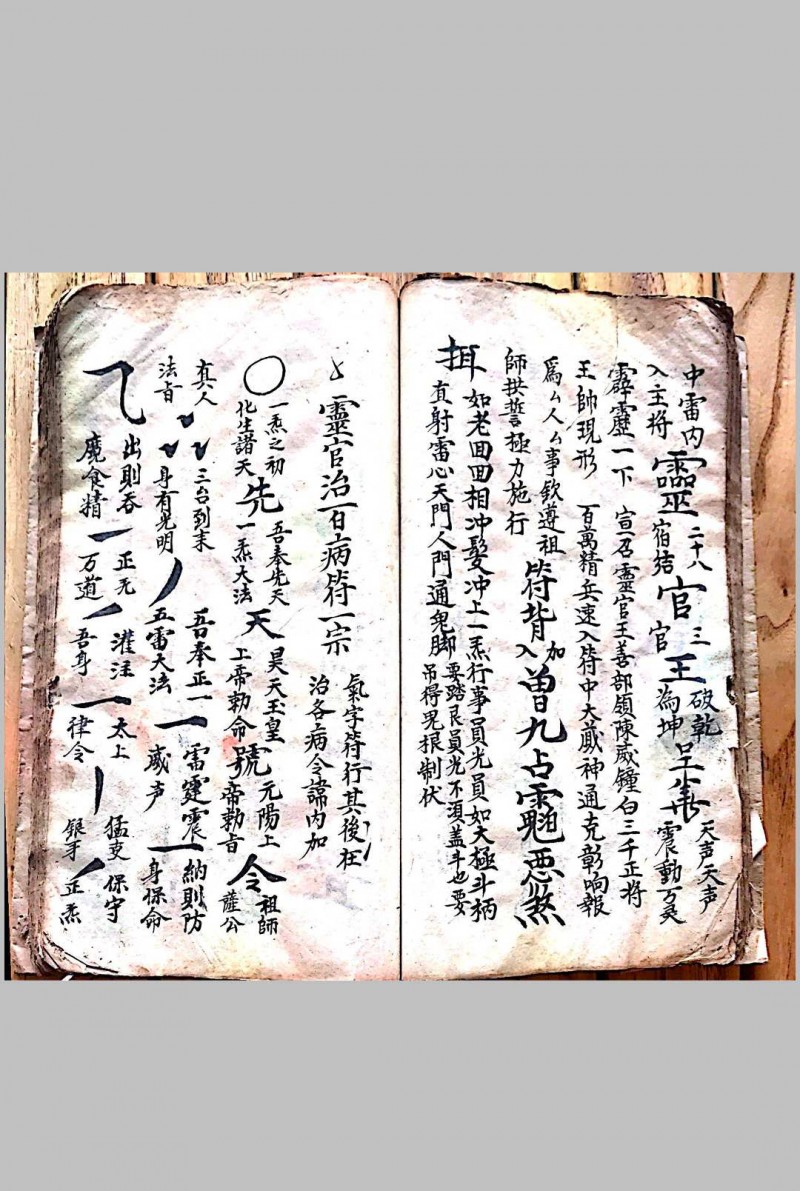 中雷內靈二十八官三王破乾
入主將宿結官為坤呈 天声天声震動万灵
霹靂一下宣召靈官王善部領陳威鍾白三千正將
王帥現形 百萬精兵速入符中大顯神通克彰响報
爲厶人厶事欽遵祖
師拱誓極力施行 符背加入 九占 魁惡煞
如老回回相冲髮冲上一炁行事員光員如大極斗柄
直射雷心天門人門通鬼脚要踏艮員光不須盖斗也要
吊得鬼根制伏
靈官治百病符一宗
氣字符行其後在
治各病令諱內加
〇一炁之初化生諸天先吾奉先天一炁大法天昊天玉皇上帝勅命號元陽上帝勅旨令祖師薩公
真人法旨 三台到末身有光明 吾奉正一五雷大法 雷霆震威声 納則防身保命
出則吞魔食精 正元万道 灌注吾身 太上律令 猛吏銀牙 保守正炁